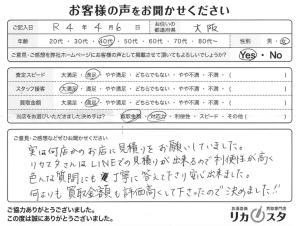 お客様の声をお聞かせください
ご記入日 R4年4月6日 お住いの都道府県 大阪
年齢 20代・30代・40代・50代・60代・70代・80代～ 性別 男・女
ご意見・ご感想を弊社ホームページにお客様の声として掲載させて頂いてもよろしいでしょうか? Yes・No
査定スピード 大満足・満足・やや満足・どちらでもない・やや不満・不満・( )
スタッフ接客 大満足・満足・やや満足・どちらでもない・やや不満・不満・( )
買取金額 大満足・満足・やや満足・どちらでもない・やや不満・不満・( )
当店をお選びいただきました決め手は? 買取金額・対応力・利便性・スピード・その他( )
ご意見・ご感想などぜひお聞かせください
実は何店かのお店に見積りをお願いしていました。
リカスタさんはLINEでの見積りが出来るので利便性が高く
色んな質問にも丁寧に答えて下さり安心出来ました。
何よりも買取金額も評価高くして下さったので決めました!!
ご協力ありがとうございました。
この度は誠にありがとうございました。
お酒買取 買取専門店
リカスタ